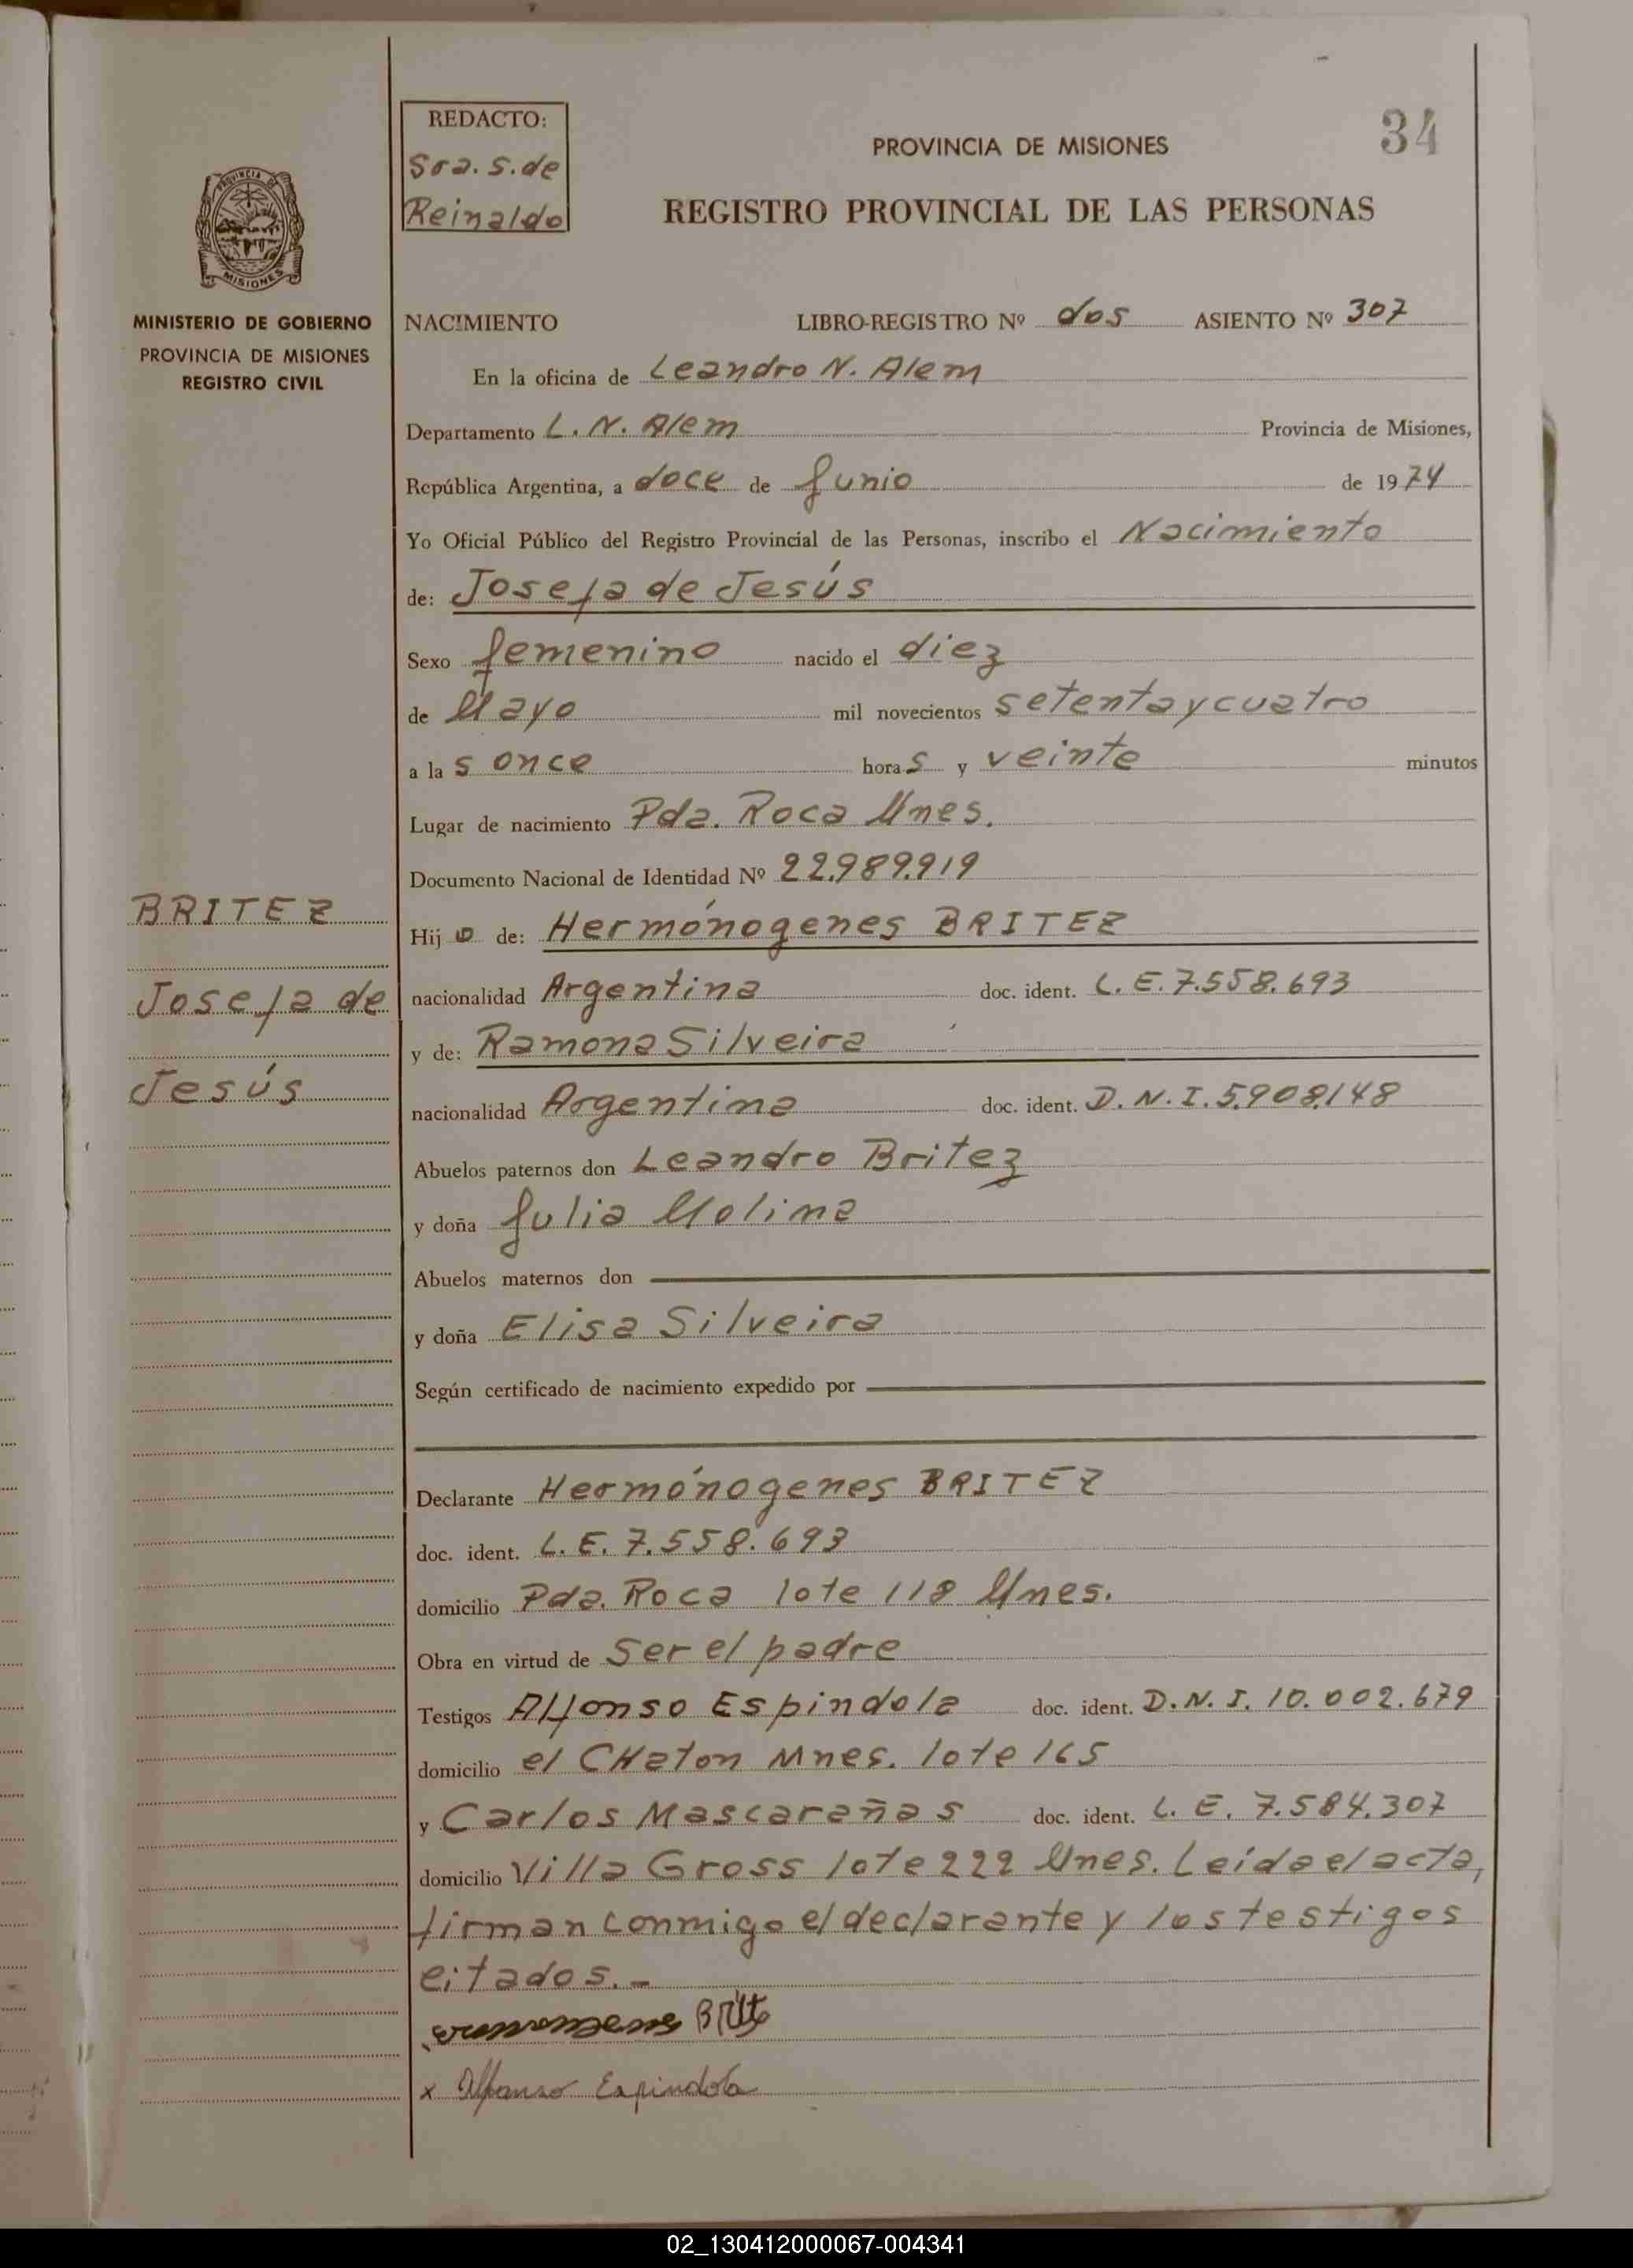 REDACTO:
Sra. S. de
Reinaldo
34
PROVINCIA DE MISIONES
REGISTRO PROVINCIAL DE LAS PERSONAS
PROVINCIA DE
MISIONES
MINISTERIO DE GOBIERNO
PROVINCIA DE MISIONES
REGISTRO CIVIL
NACIMIENTO LIBRO-REGISTRO Nº dos ASIENTO Nº 307
En la oficina de Leandro N. Alem
Departamento L. N. Alem Provincia de Misiones,
República Argentina, a doce de Junio de 1974
Yo Oficial Público del Registro Provincial de las Personas, inscribo el Nacimiento
de: Josefa de Jesús
Sexo femenino nacido el diez
de Mayo mil novecientos setenta y cuatro
a las once horas y veinte minutos
Lugar de nacimiento Pda. Roca Mnes.
Documento Nacional de Identidad Nº 22.989.919
BRITEZ
Josefa de
Jesús
Hija de: Hermónogenes BRITEZ
nacionalidad Argentina doc. ident. L. E. 7.558.693
y de: Ramona Silveira
nacionalidad Argentina doc. ident. D. N. I. 5.908.148
Abuelos paternos don Leandro Britez
y doña Julia Molina
Abuelos maternos don
y doña Elisa Silveira
Según certificado de nacimiento expedido por
Declarante Hermónogenes BRITEZ
doc. ident. L. E. 7.558.693
domicilio Pda. Roca lote 118 Mnes.
Obra en virtud de Ser el padre
Testigos Alfonso Espindola doc. ident. D. N. I. 10.002.679
domicilio el CHaton Mnes. lote 165
y Carlos Mascarañas doc. ident. L. E. 7.584.307
domicilio Villa Gross lote 222 Mnes. Leida el acta,
firman conmigo el declarante y los testigos
citados.-
x Alfonso Espindola
02_130412000067-004341